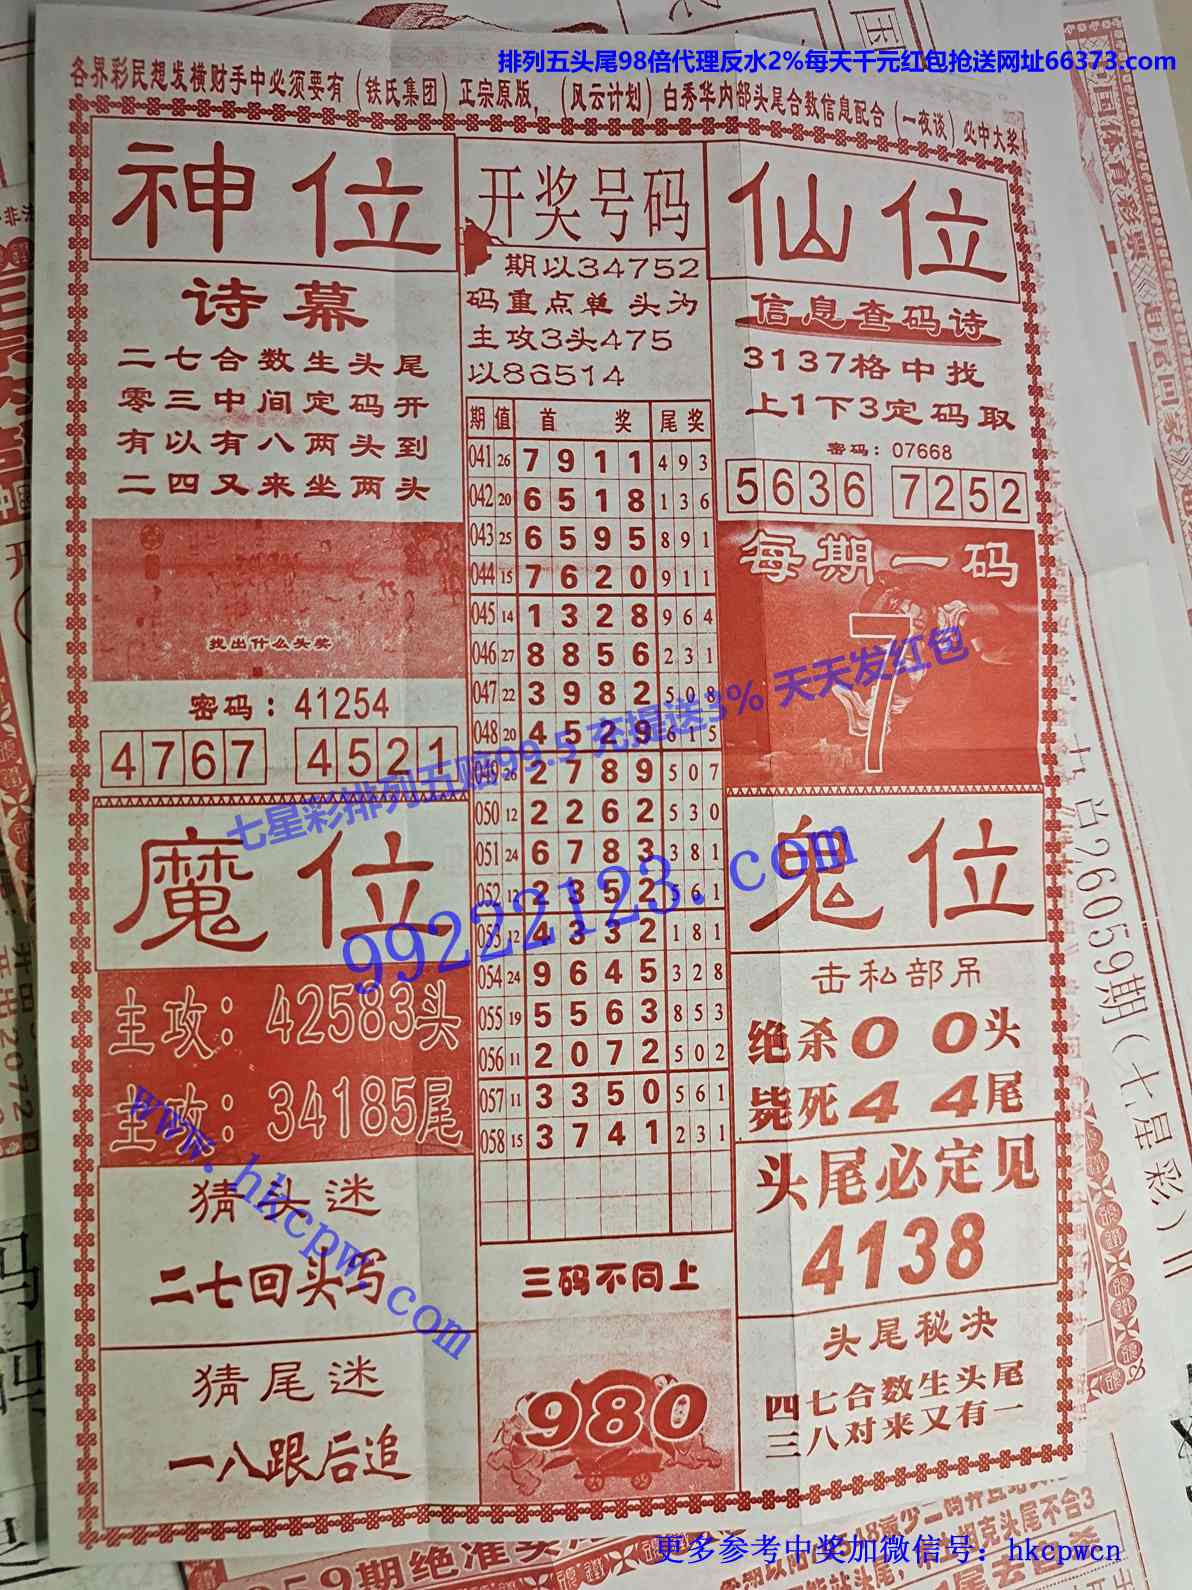 排列五头尾98倍代理反水2%每天千元红包抢送网址66373.com
各界彩民想发横财手中必须要有（铁氏集团）正宗原版，（风云计划）白秀华内部头尾合数信息配合（一夜谈）必中大奖！
神位
诗幕
二七合数生头尾
零三中间定码开
有以有八两头到
二四又来坐两头
找出什么头奖
密码：41254
4767 4521
开奖号码
期以34752
码重点单 头为
主攻3头475
以86514
期 值 首 奖 尾奖
041 26 7 9 1 1 4 9 3
042 20 6 5 1 8 1 3 6
043 25 6 5 9 5 8 9 1
044 15 7 6 2 0 9 1 1
045 14 1 3 2 8 9 6 4
046 27 8 8 5 6 2 3 1
047 22 3 9 8 2 5 0 8
048 20 4 5 2 9 6 1 5
049 26 2 7 8 9 5 0 7
050 12 2 2 6 2 5 3 0
051 24 6 7 8 3 3 8 1
052 12 2 3 5 2 5 6 1
053 12 4 3 3 2 1 8 1
054 24 9 6 4 5 3 2 8
055 19 5 5 6 3 8 5 3
056 11 2 0 7 2 5 0 2
057 11 3 3 5 0 5 6 1
058 15 3 7 4 1 2 3 1
三码不同上
980
仙位
信息查码诗
3137格中找
上1下3定码取
密码：07668
5636 7252
每期一码
7
魔位
主攻：42583头
主攻：34185尾
猜头迷
二七回头写
猜尾迷
一八跟后追
鬼位
击私部吊
绝杀00头
毙死44尾
头尾必定见
4138
头尾秘决
四七合数生头尾
三八对来又有一
七星彩排列五赔99.5 充提送3% 天天发红包
99222123.com
www.hkcpw.com
更多参考中奖加微信号：hkcpwcn
26059期(七星彩)
中国体育彩票